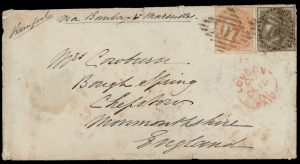 via Bombay & Marseilles
Mrs Cowburn
Bough spring
Chepstow
Monmouthshire
England
LONDON
PAID